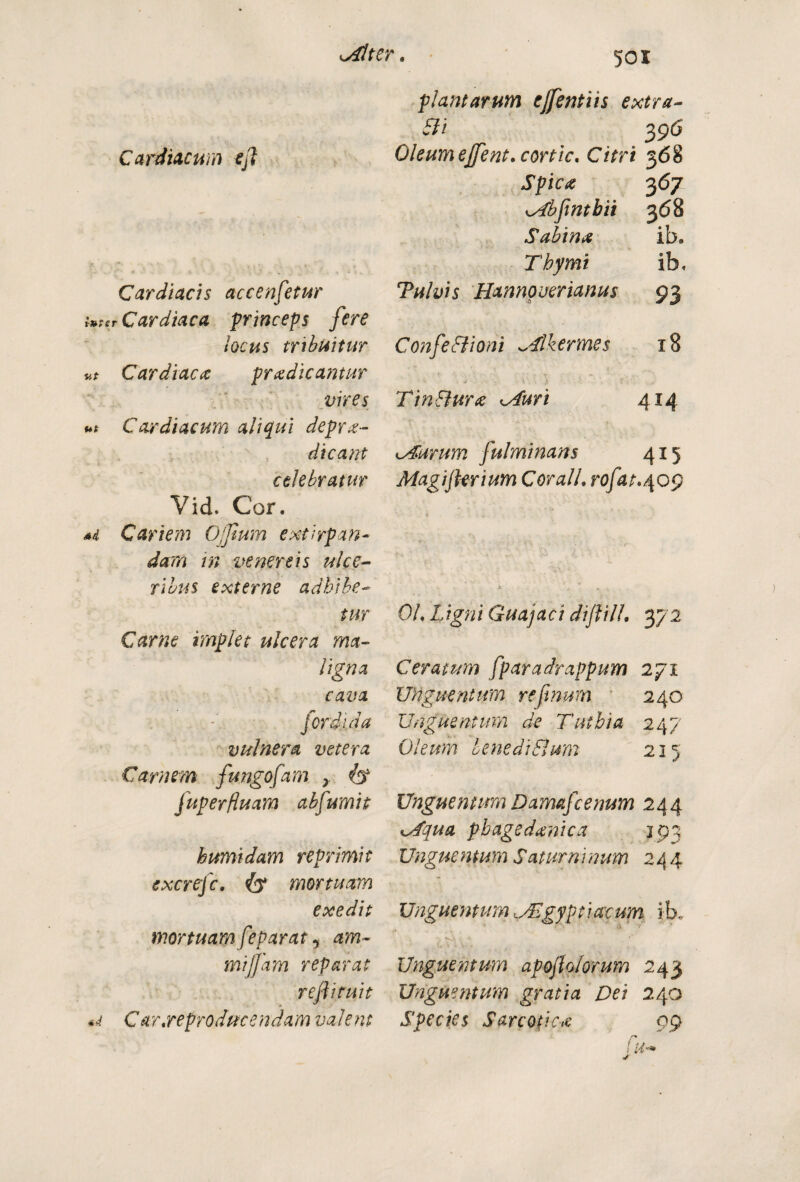 Alter. 501
plantarum eſſentiis extra-
cti 396
Cardiacum eſt Oleum eſſent. cortic. Citri 368
Spicæ 367
Abſinthii 368
Sabinæ ib.
Thymi ib.
Cardiacis accenſetur Pulvis Hannoverianus 93
inter Cardiaca princeps fere
locus tribuitur Confectioni Alkermes 18
ut Cardiacæ prædicantur
vires Tincturæ Auri 414
ut Cardiacum aliqui depræ-
dicant Aurum fulminans 415
celebratur Magiſterium Corall. roſat. 409
Vid. Cor.
ad Cariem Oſſium extirpan-
dam in venereis ulce-
ribus externe adhibe-
tur Ol. Ligni Guajaci diſtill. 372
Carne implet ulcera ma-
ligna Ceratum ſparadrappum 271
cava Unguentum reſinum 240
ſordida Unguentum de Tuthia 247
vulnera vetera Oleum benedictum 215
Carnem fungoſam, &
ſuperfluam abſumit Unguentum Damaſcenum 244
Aqua phagedænica 193
humidam reprimit Unguentum Saturninum 244
excreſc. & mortuam
exedit Unguentum Ægyptiacum ib.
mortuam ſeparat, am-
miſſam reparat Unguentum apoſtolorum 243
reſtituit Unguentum gratia Dei 240
ad Car. reproducendam valent Species Sarcoticæ 99
ſu-